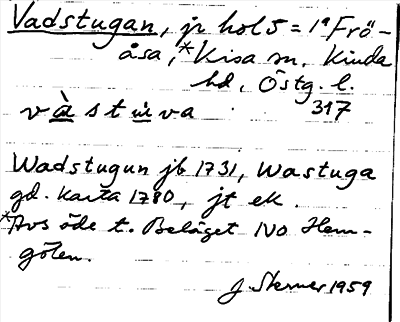 Vadstugan, jr hol 5 = 1ª Frö-
åsa,* Kisa sn, Kinda
hd, Östg. l.
và stu̇va 317
Wadstugun jb 1731, Wastuga
gd. karta 1780, jt ek.
*Avs öde t. Beläget NO Hem-
gölen.
J Sterner 1959